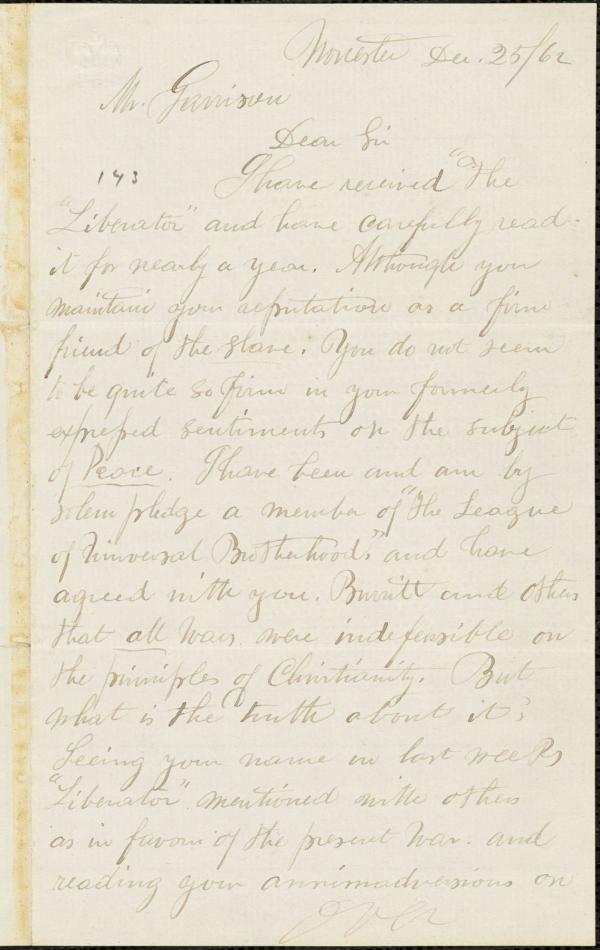 Worcester Dec. 25/62
Mr. Garrison
Dear Sir
143 I have received "The
"Liberator" and have carefully read
it for nearly a year. Although you
maintain your reputation as a firm
friend of the slave. You do not seem
to be quite so firm in your formerly
expressed sentiments on the subject
of Peace. I have been and am by
solem pledge a member of "the League
of Universal Brotherhood," and have
agreed with you. Burritt and others
that all Wars were indefensible on
the principles of Christianity. But
what is the truth about it?
Seeing your name in last weeks
"Liberator" mentioned with others
as in favour of the present War. and
reading your annimadversions on